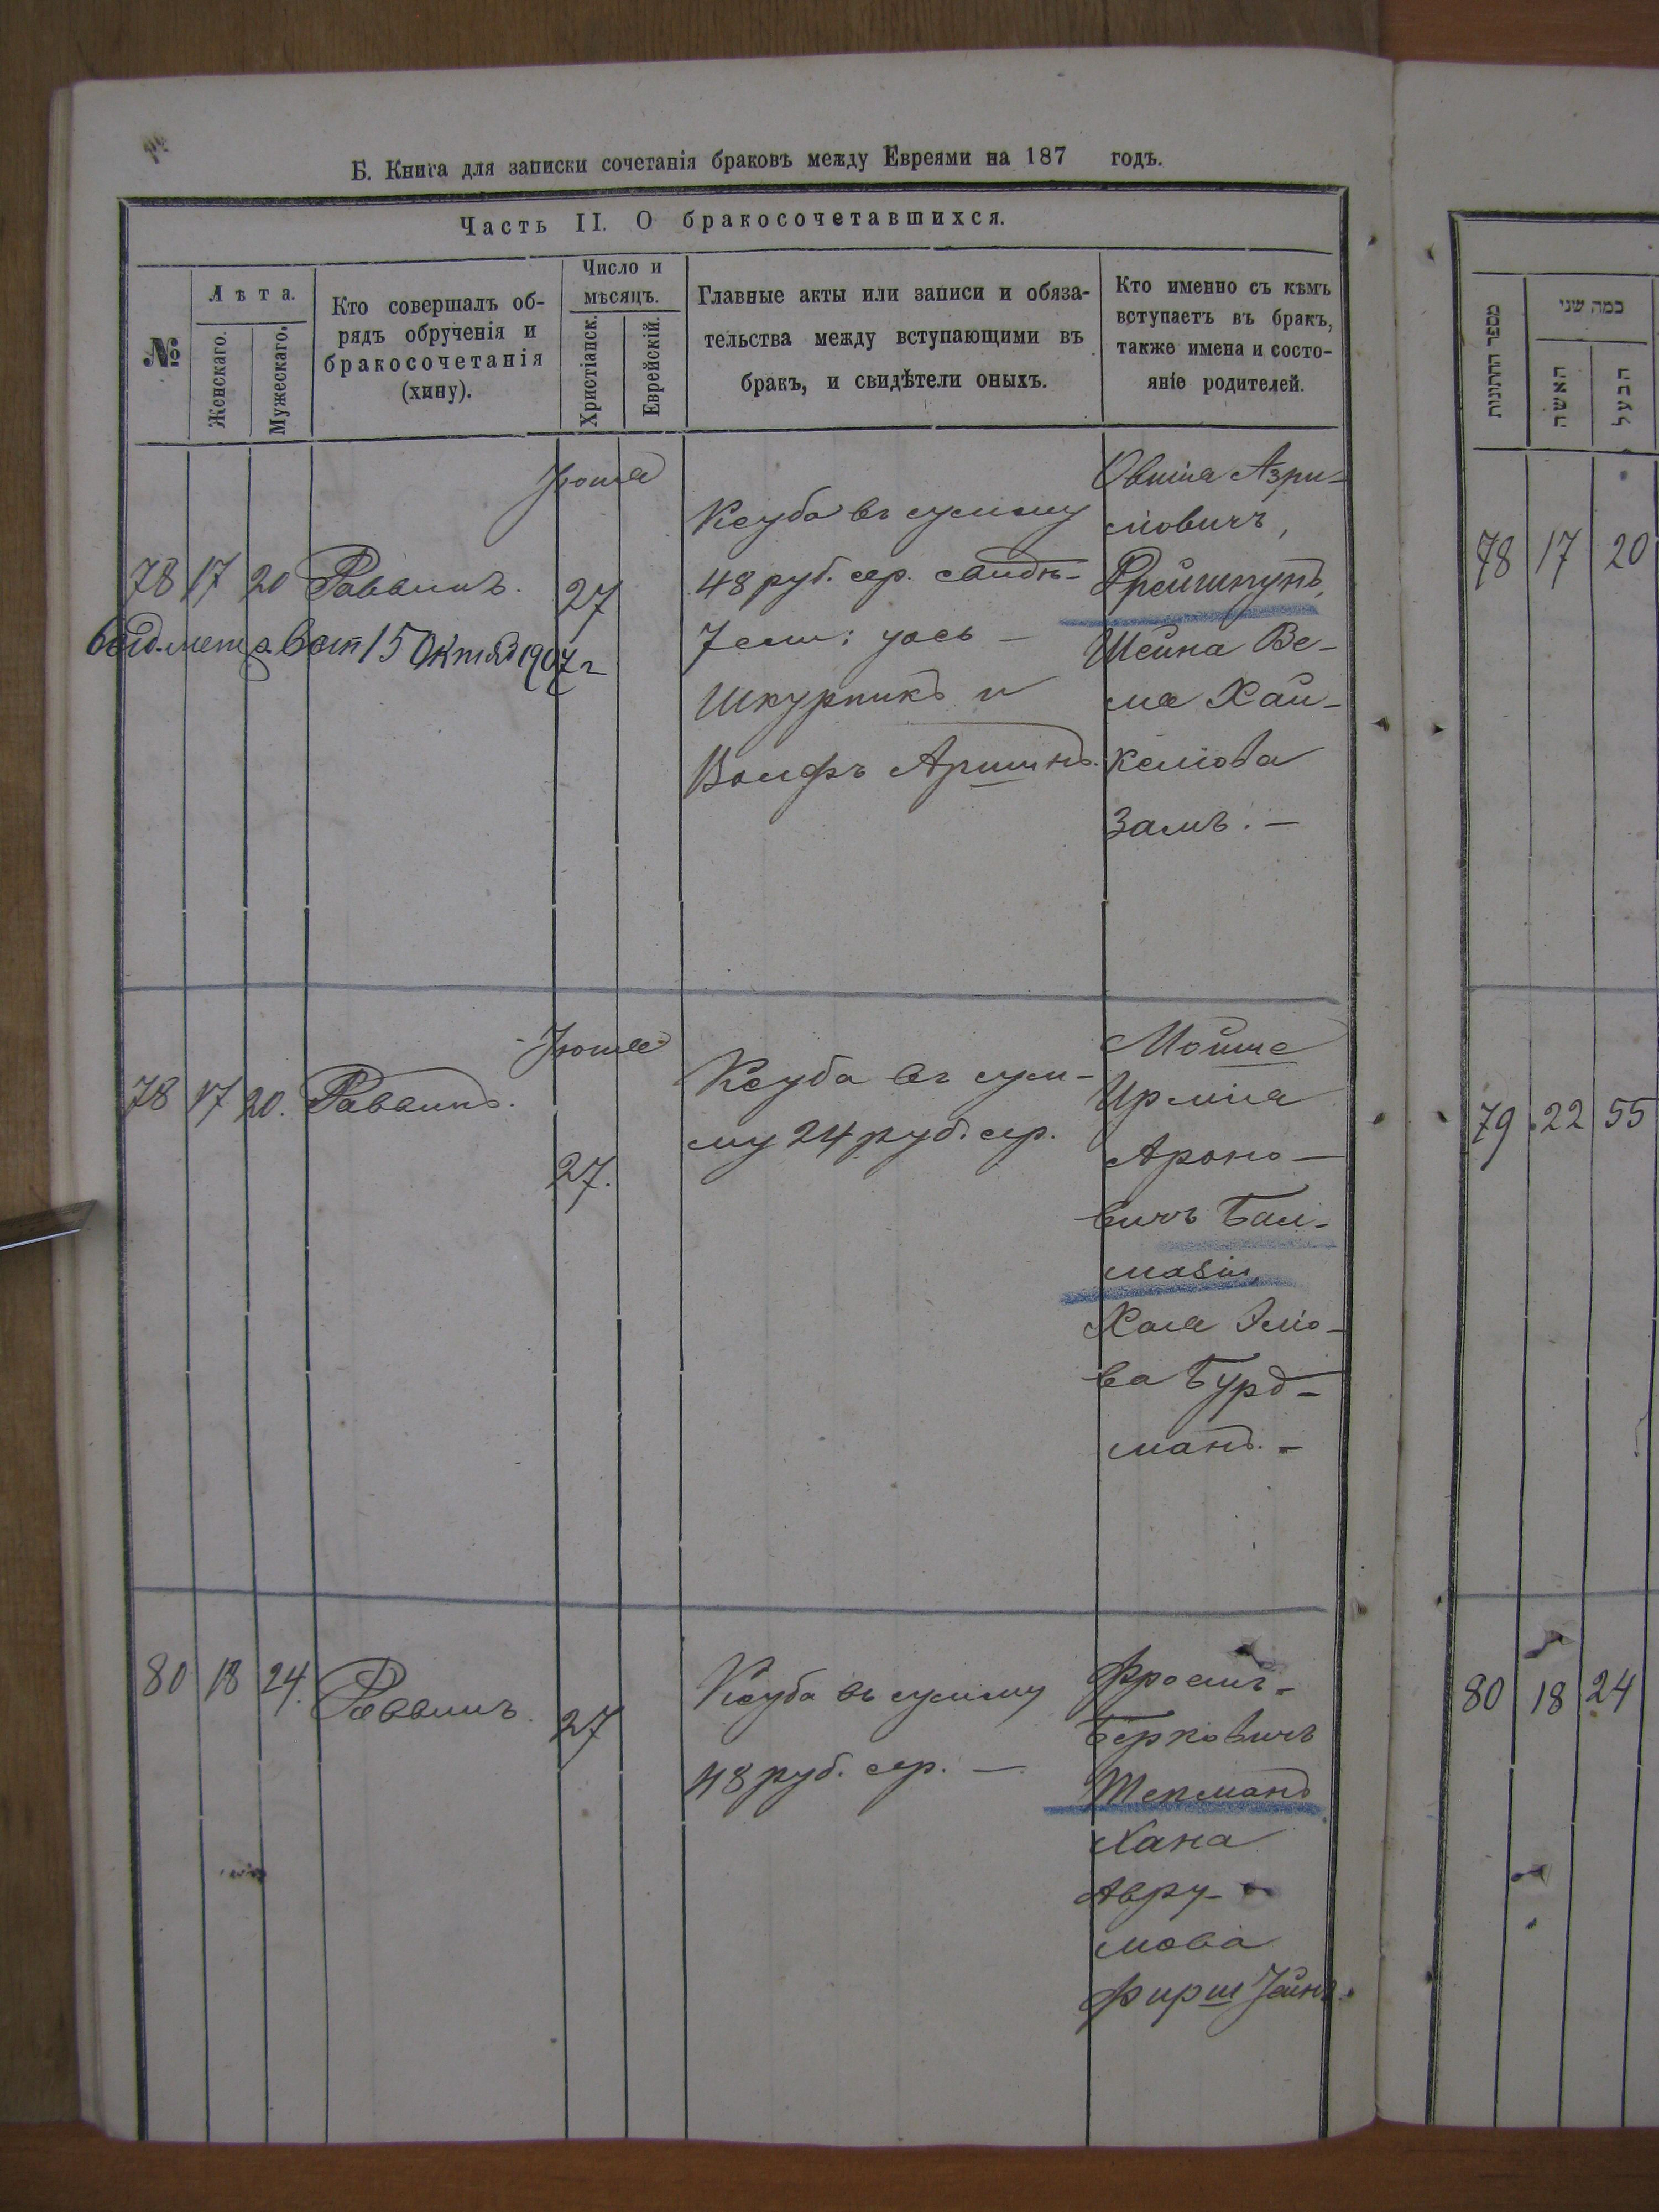 Б. Книга для записки сочетанія браковъ между Евреями на 187 годъ.
Часть II. О бракосочетавшихся.
№
Лѣта.
Женскаго.
Мужескаго.
Кто совершалъ об-
рядъ обрученія и
бракосочетанія
(хину).
Число и
мѣсяцъ.
Христіанск.
Еврейскій.
Главные акты или записи и обяза-
тельства между вступающими въ
бракъ, и свидѣтели оныхъ.
Кто именно съ кѣмъ
вступаетъ въ бракъ,
также имена и состо-
яніе родителей.
78 17 20 Раввинъ.
Іюня
27
15 Октяб 1907 г
Ксуба въ сумму
48 руб. сер. свидѣ-
Шкурникъ и
Вольфъ Аршинъ.
Овшія Азри-
ліовичъ,
Фрейшпунъ,
Шейна Ве-
ля Хай-
келіова
Залъ. —
78 17 20. Раввинъ.
Іюня
27.
Ксуба въ сум-
му 24 руб. сер.
Мойше
Ирміа
Ароно-
вичъ Бал-
Хая Эліо-
ва Бурд-
манъ. —
80 18 24. Раввинъ.
27
Ксуба въ сумму
48 руб. сер. —
Фроимъ-
Берковичъ
Текманъ
Хана
Авру-
мова
מספר החתונות
כמה שני
האשה
הבעל
78 17 20
79 22 55
80 18 24